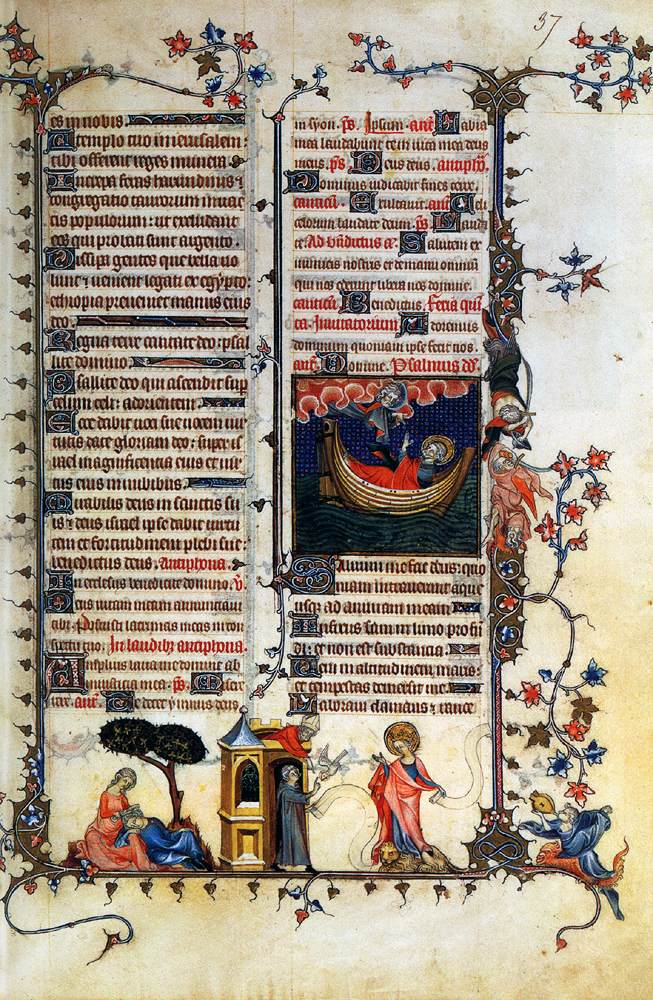 es in nobis
A templo tuo in ierusalem:
tibi offerent reges munera
Increpa feras harundinis
congregatio taurorum in vac
cis populorum: ut excludant
eos qui probati sunt argento.
Dissipa gentes que bella vo
lunt: venient legati ex egypto:
ethiopia preveniet manus eius
deo.
Regna terre cantate deo: psal
lite domino
Psallite deo qui ascendit sup
celum celi: ad orientem
Ecce dabit voci sue vocem vir
tutis date gloriam deo: super is
rael magnificentia eius et vir
tus eius in nubibus
Mirabilis deus in sanctis su
is: deus israel ipse dabit virtu
tem et fortitudinem plebi sue:
benedictus deus. Antiphona.
In ecclesiis benedicite domino. V.
Deus vitam meam annunciavi
tibi. Posuisti lacrimas meas in con
spectu tuo. In laudibus antiphona.
Amplius lava me domine ab
iniusticia mea. ps. Misere
re. ant. Te decet ymnus deus
37
in syon. ps. Ipsum. ant. Labia
mea laudabunt te in vita mea deus
meus. ps. Deus deus. antiph.
Dominus iudicabit fines terre.
canticum. Exultavit. ant. Celi
celorum laudate deum. ps. Lauda
te. Ad Salutem ex
inimicis nostris et de manu omnium
qui nos oderunt libera nos domine.
canticum. Benedictus. Feria quin
ta. Invitatorium. Adoremus
dominum quoniam ipse fecit nos.
ant. Domine. Psalmus dd.
Salvum me fac deus: quo
niam intraverunt aque
usque ad animam meam
Infixus sum in limo profun
di: et non est substancia.
Veni in altitudinem maris:
et tempestas demersit me.
Laboravi clamans rauce